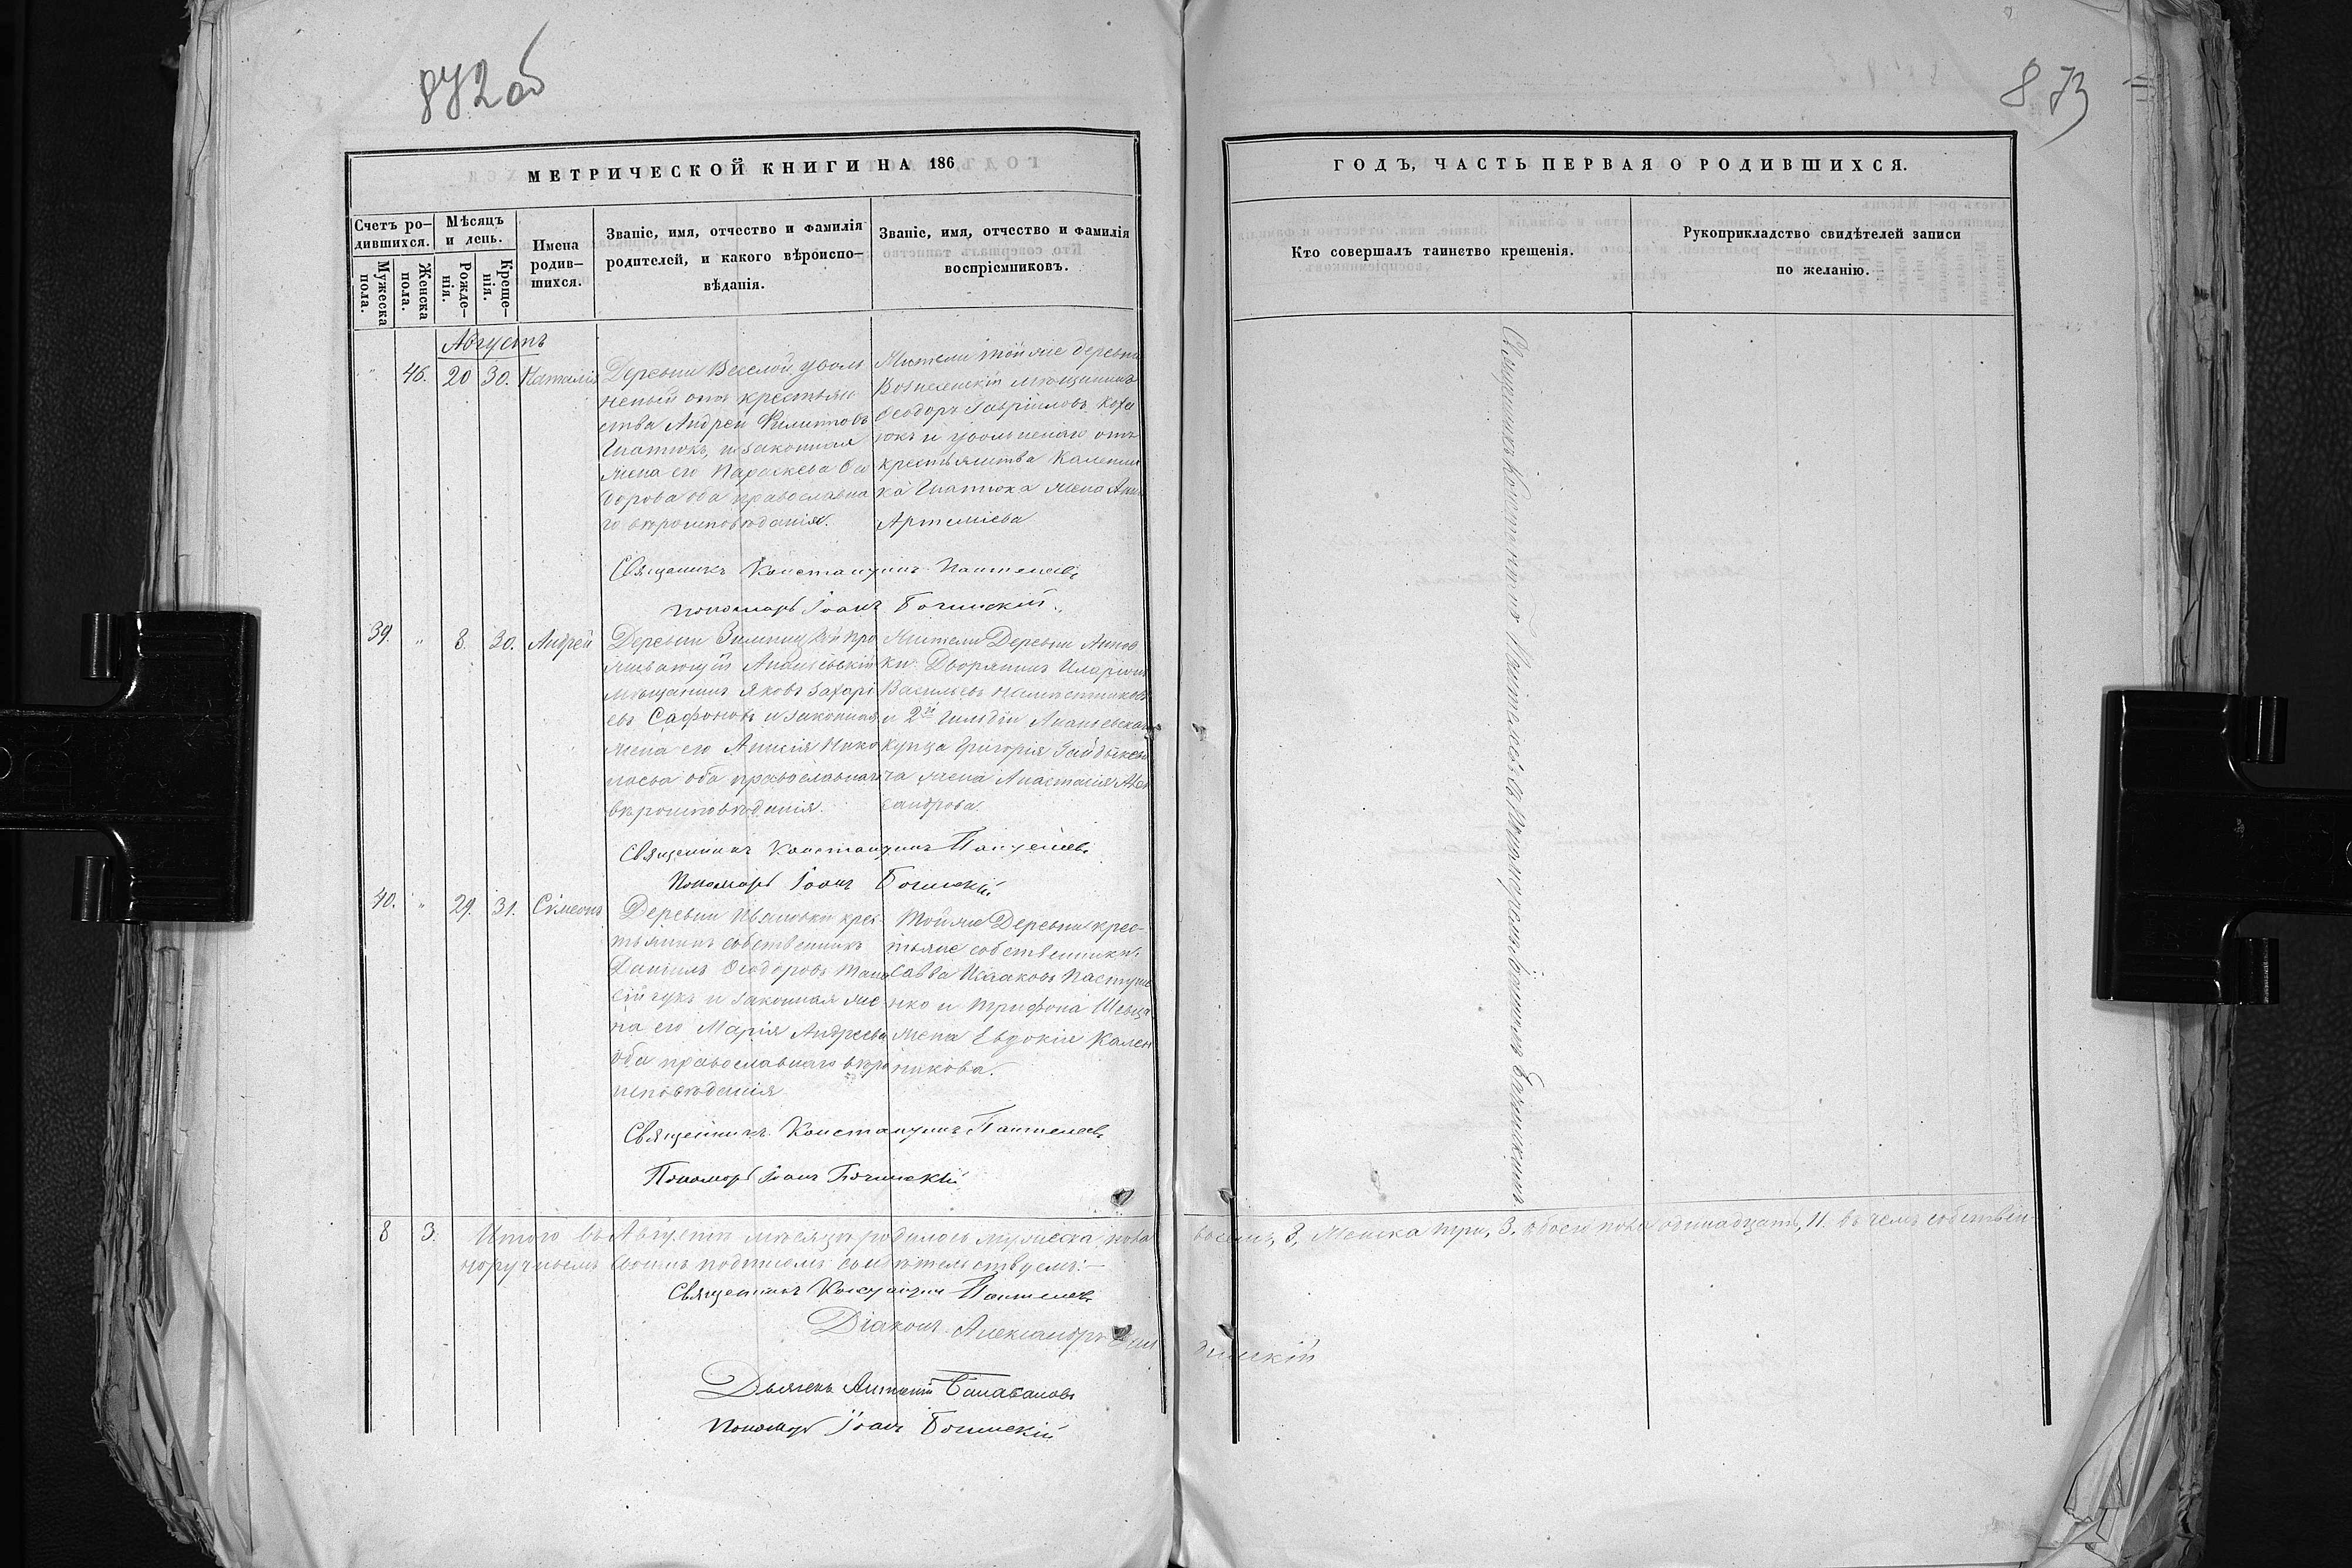 872об
873
МЕТРИЧЕСКОЙ КНИГИ НА 186
Счетъ ро-
дившихся.
Мѣсяцъ
и день.
Мужеска
пола.
Женска
пола.
Рожде-
нія.
Креще-
нія.
Имена
родив-
шихся.
Званіе, имя, отчество и фамилія
родителей, и какого вѣроиспо-
вѣданія.
Званіе, имя, отчество и фамилія
воспріемниковъ.
Августъ
" 46. 20 30. Наталія
Деревни Веселой уволь
неный отъ крестьян
ства Андрей Филиповъ
Гнатюкъ, и законная
жена его Параскева Ѳе
дорова оба православна
го вѣроисповѣданія.
Жители той же деревни
Вознесенскій мѣщанинъ
Ѳеодоръ Гавріиловъ
юкъ и уволненаго отъ
крестьянства Калени
ка Гнатюка жена Анна
Артеміева
Священикъ Константинъ Пантелеевъ
Пономарь Іоанъ
39. " 8. 30. Андрей
Деревни про
живающій Ананьевскій
мѣщанинъ Яковъ Захарі
евъ Сафоновъ и законная
жена его Анисія Нико
лаева оба православнаго
вѣроисповѣданія.
Жители Деревни Аннов
ки: Дворянинъ Иларіонъ
Васильевъ
и 2й Гильдіи Ананьевскаго
Купца Григорія
жена Анастасія Алек
сандрова.
Священникъ Константинъ Пантелеевъ
Пономарь Іоанъ
40. " 29. 31. Сѵмеонъ
Деревни Ивановки крес-
тьянинъ собственникъ
Даніилъ Ѳеодоровъ
и законная же-
на его Марія Андреева
оба православнаго вѣро
исповѣданія
Той же Деревни крес-
тьяне собственники:
Савва Исааковъ Пастуше
нко и Трифона Шевца
жена Евдокія Кален
никова.
Священникъ Константинъ Пантелеевъ
Пономарь Іоанъ
8 3. Итого въ Августѣ мѣсяцѣ родилось мужеска пола
норучнымъ своимъ подписомъ свидѣтельствуемъ:
Священникъ Константинъ Пантелеевъ
Діаконъ Александръ
Дьячекъ Антоній Балабановъ
Пономарь Іоанъ
ГОДЪ, ЧАСТЬ ПЕРВАЯ О РОДИВШИХСЯ.
Кто совершалъ таинство крещенія.
Рукоприкладство свидѣтелей записи
по желанію.
Священникъ Константинъ Пантелеевъ съ Пономаремъ Іоанномъ
восемь, 8, Женска три, 3. обоего пола одинадцать, 11. въ чемъ собствен-